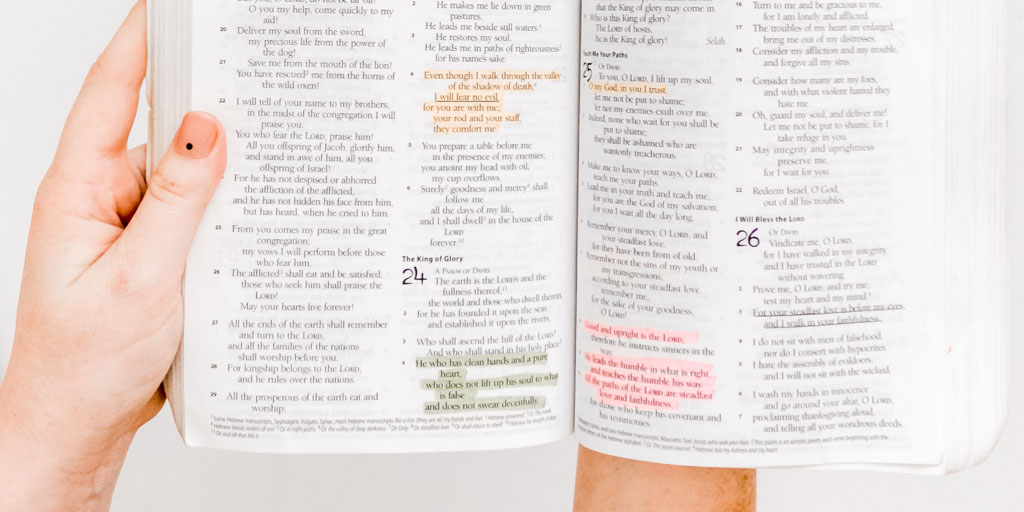 O you my help, come quickly to my
aid!
20 Deliver my soul from the sword,
my precious life from the power of
the dog!
21 Save me from the mouth of the lion!
You have rescued me from the horns of
the wild oxen!
22 I will tell of your name to my brothers;
in the midst of the congregation I will
praise you:
You who fear the LORD, praise him!
All you offspring of Jacob, glorify him,
and stand in awe of him, all you
offspring of Israel!
For he has not despised or abhorred
the affliction of the afflicted,
and he has not hidden his face from him,
but has heard, when he cried to him.
25 From you comes my praise in the great
congregation;
my vows I will perform before those
who fear him.
26 The afflicted shall eat and be satisfied;
those who seek him shall praise the
LORD!
May your hearts live forever!
27 All the ends of the earth shall remember
and turn to the LORD,
and all the families of the nations
shall worship before you.
28 For kingship belongs to the LORD,
and he rules over the nations.
29 All the prosperous of the earth eat and
worship;
2 He makes me lie down in green
pastures.
He leads me beside still waters.
3 He restores my soul.
He leads me in paths of righteousness
for his name's sake.
4 Even though I walk through the valley
of the shadow of death,
I will fear no evil,
for you are with me;
your rod and your staff,
they comfort me.
5 You prepare a table before me
in the presence of my enemies;
you anoint my head with oil;
my cup overflows.
6 Surely goodness and mercy shall
follow me
all the days of my life,
and I shall dwell in the house of the
LORD
forever.
The King of Glory
24 A PSALM OF DAVID.
The earth is the LORD's and the
fullness thereof,
the world and those who dwell therein,
2 for he has founded it upon the seas
and established it upon the rivers.
3 Who shall ascend the hill of the LORD?
And who shall stand in his holy place?
4 He who has clean hands and a pure
heart,
who does not lift up his soul to what
is false
and does not swear deceitfully.
that the King of glory may come in.
Who is this King of glory?
The LORD of hosts,
he is the King of glory! Selah
Teach Me Your Paths
25 OF DAVID.
To you, O LORD, I lift up my soul.
O my God, in you I trust;
let me not be put to shame;
let not my enemies exult over me.
Indeed, none who wait for you shall be
put to shame;
they shall be ashamed who are
wantonly treacherous.
Make me to know your ways, O LORD;
teach me your paths.
Lead me in your truth and teach me,
for you are the God of my salvation;
for you I wait all the day long.
Remember your mercy, O LORD, and
your steadfast love,
for they have been from of old.
Remember not the sins of my youth or
my transgressions;
according to your steadfast love
remember me,
for the sake of your goodness,
O LORD!
Good and upright is the LORD;
therefore he instructs sinners in the
way.
He leads the humble in what is right,
and teaches the humble his way.
All the paths of the LORD are steadfast
love and faithfulness,
for those who keep his covenant and
his testimonies.
16 Turn to me and be gracious to me,
for I am lonely and afflicted.
17 The troubles of my heart are enlarged;
bring me out of my distresses.
18 Consider my affliction and my trouble,
and forgive all my sins.
19 Consider how many are my foes,
and with what violent hatred they
hate me.
20 Oh, guard my soul, and deliver me!
Let me not be put to shame, for I
take refuge in you.
21 May integrity and uprightness
preserve me,
for I wait for you.
22 Redeem Israel, O God,
out of all his troubles.
I Will Bless the LORD
26 OF DAVID.
Vindicate me, O LORD,
for I have walked in my integrity,
and I have trusted in the LORD
without wavering.
2 Prove me, O LORD, and try me;
test my heart and my mind.
3 For your steadfast love is before my eyes,
and I walk in your faithfulness.
4 I do not sit with men of falsehood,
nor do I consort with hypocrites.
5 I hate the assembly of evildoers,
and I will not sit with the wicked.
6 I wash my hands in innocence
and go around your altar, O LORD,
7 proclaiming thanksgiving aloud,
and telling all your wondrous deeds.